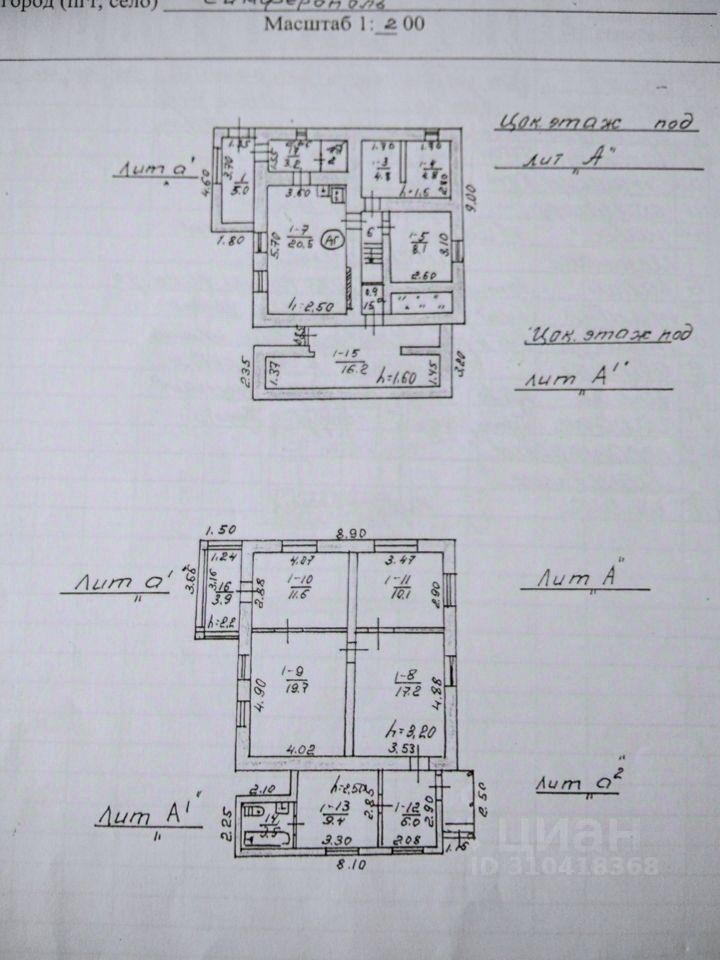 город (пгт, село) Симферополь
Масштаб 1: 200
Цок. этаж под
лит "А"
Лит а'
1.35
3.70
4.60
1
5.0
1.80
3.2
1-3
4.8
1.90
2.80
h=1.6
9.00
3.60
1-7
20.5
АГ
5.70
h=2.50
6
1-5
8.1
3.10
2.60
0.9
15а
Цок. этаж под
лит "А"
1-15
16.2
2.35
1.37
h=1.60
1.45
3.20
1.50
8.90
1.24
4.07
3.47
Лит а'
3.68
3.16
16
3.9
h=2.2
2.88
1-10
11.6
1-11
10.1
2.90
Лит "А"
1-9
19.7
4.90
4.02
1-8
17.2
4.88
h=3,20
3.53
Лит а²
2.10
h=2.50
Лит А'
2.25
14
3.5
1-13
9.4
2.85
3.30
1-12
6.0
2.90
2.08
2.50
1.75
8.10
циан
ID 310418368